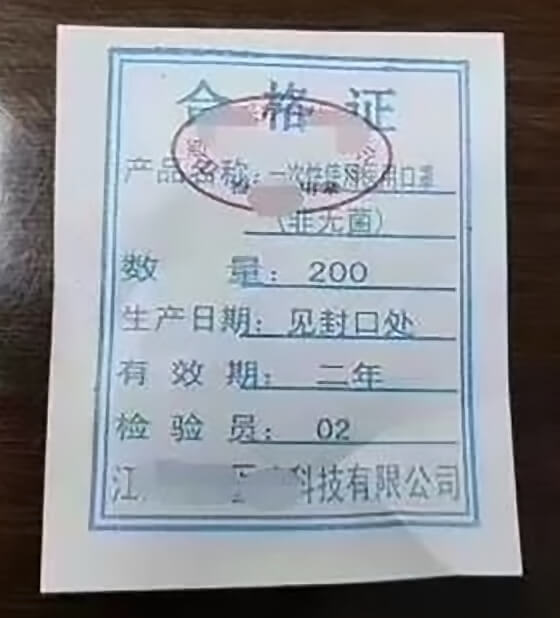 合格证
产品名称：一次性使用医用口罩
（非无菌）
数量：200
生产日期：见封口处
有效期：二年
检验员：02
江 科技有限公司